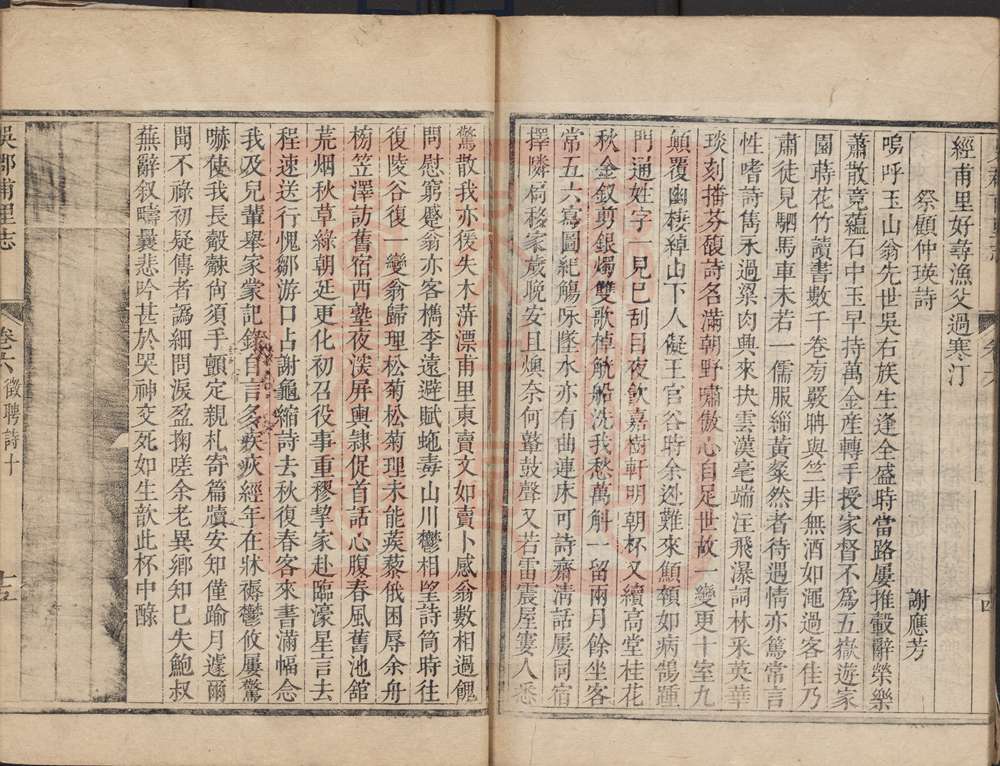 經甫里好尋漁父過寒汀
祭顧仲瑛詩
謝應芳
嗚呼玉山翁先世吳右族生逢全盛時當路屢推轂辭榮樂
蕭散竟蘊石中玉早持萬金産轉手授家督不為五嶽遊家
園蒔花竹讀書數千卷旁嚴聃與竺非無酒如澠過客佳乃
肅徒見駟馬車未若一儒服緇黃粲然者待遇情亦篤常言
性嗜詩雋永過粱肉興來抉雲漢毫端汪飛瀑詞林采英華
琰刻播芬馥詩名滿朝野嘯傲心自足世故一變更十室九
顛覆幽棲綽山下人儗王官谷時余迯難來顦顇如病鵠踵
門通姓字一見已刮目夜飲嘉樹軒明朝杯又續高堂桂花
秋金釵剪銀燭雙歌棹觥船洗我愁萬斛一留兩月餘坐客
常五六寫圖紀觴咏墜水亦有曲連床可詩齋清話屢同宿
擇隣扃移家歲晚安且燠奈何鼙鼓聲又若雷震屋妻人悉
驚散我亦復失木漭漂甫里東賣文如賣卜感翁數相過餽
問慰窮蹙翁亦客檇李遠避賦虵毒山川鬱相望詩筒時往
復陵谷復一變翁歸理松菊松菊理未能蒺藜俄困辱余舟
栘笠澤訪舊宿西塾夜湥屏輿隸促首話心腹春風舊池舘
荒烟秋草綠朝廷更化初召役事重穋挈家赴臨濠星言去
程速送行愧鄒游口占謝龜縮詩去秋復春客來書滿幅念
我及兒輩舉家蒙記錄自言多疾疢經年在牀褥鬱攸屢驚
嚇使我長觳觫尙須手顫定親札寄篇牘安知僅踰月遽爾
聞不祿初疑傳者譌細問淚盈掬嗟余老異鄉知已失鮑叔
蕪辭叙疇曩悲吟甚於哭神交死如生歆此杯中醁
吳郡甫里志
卷六 徵聘詩十
十五